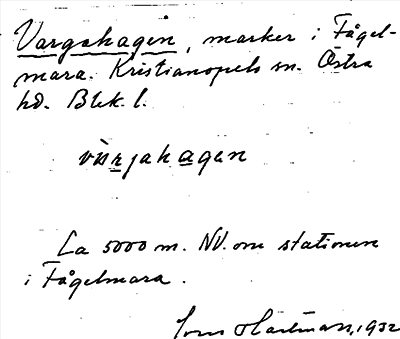 Vargahagen, marker i Fågel-
mara. Kristianopels sn. Östra
hd. Blek. l.
hagen
Ca 5000 m. NV. om stationen
i Fågelmara.
Hartman, 1932